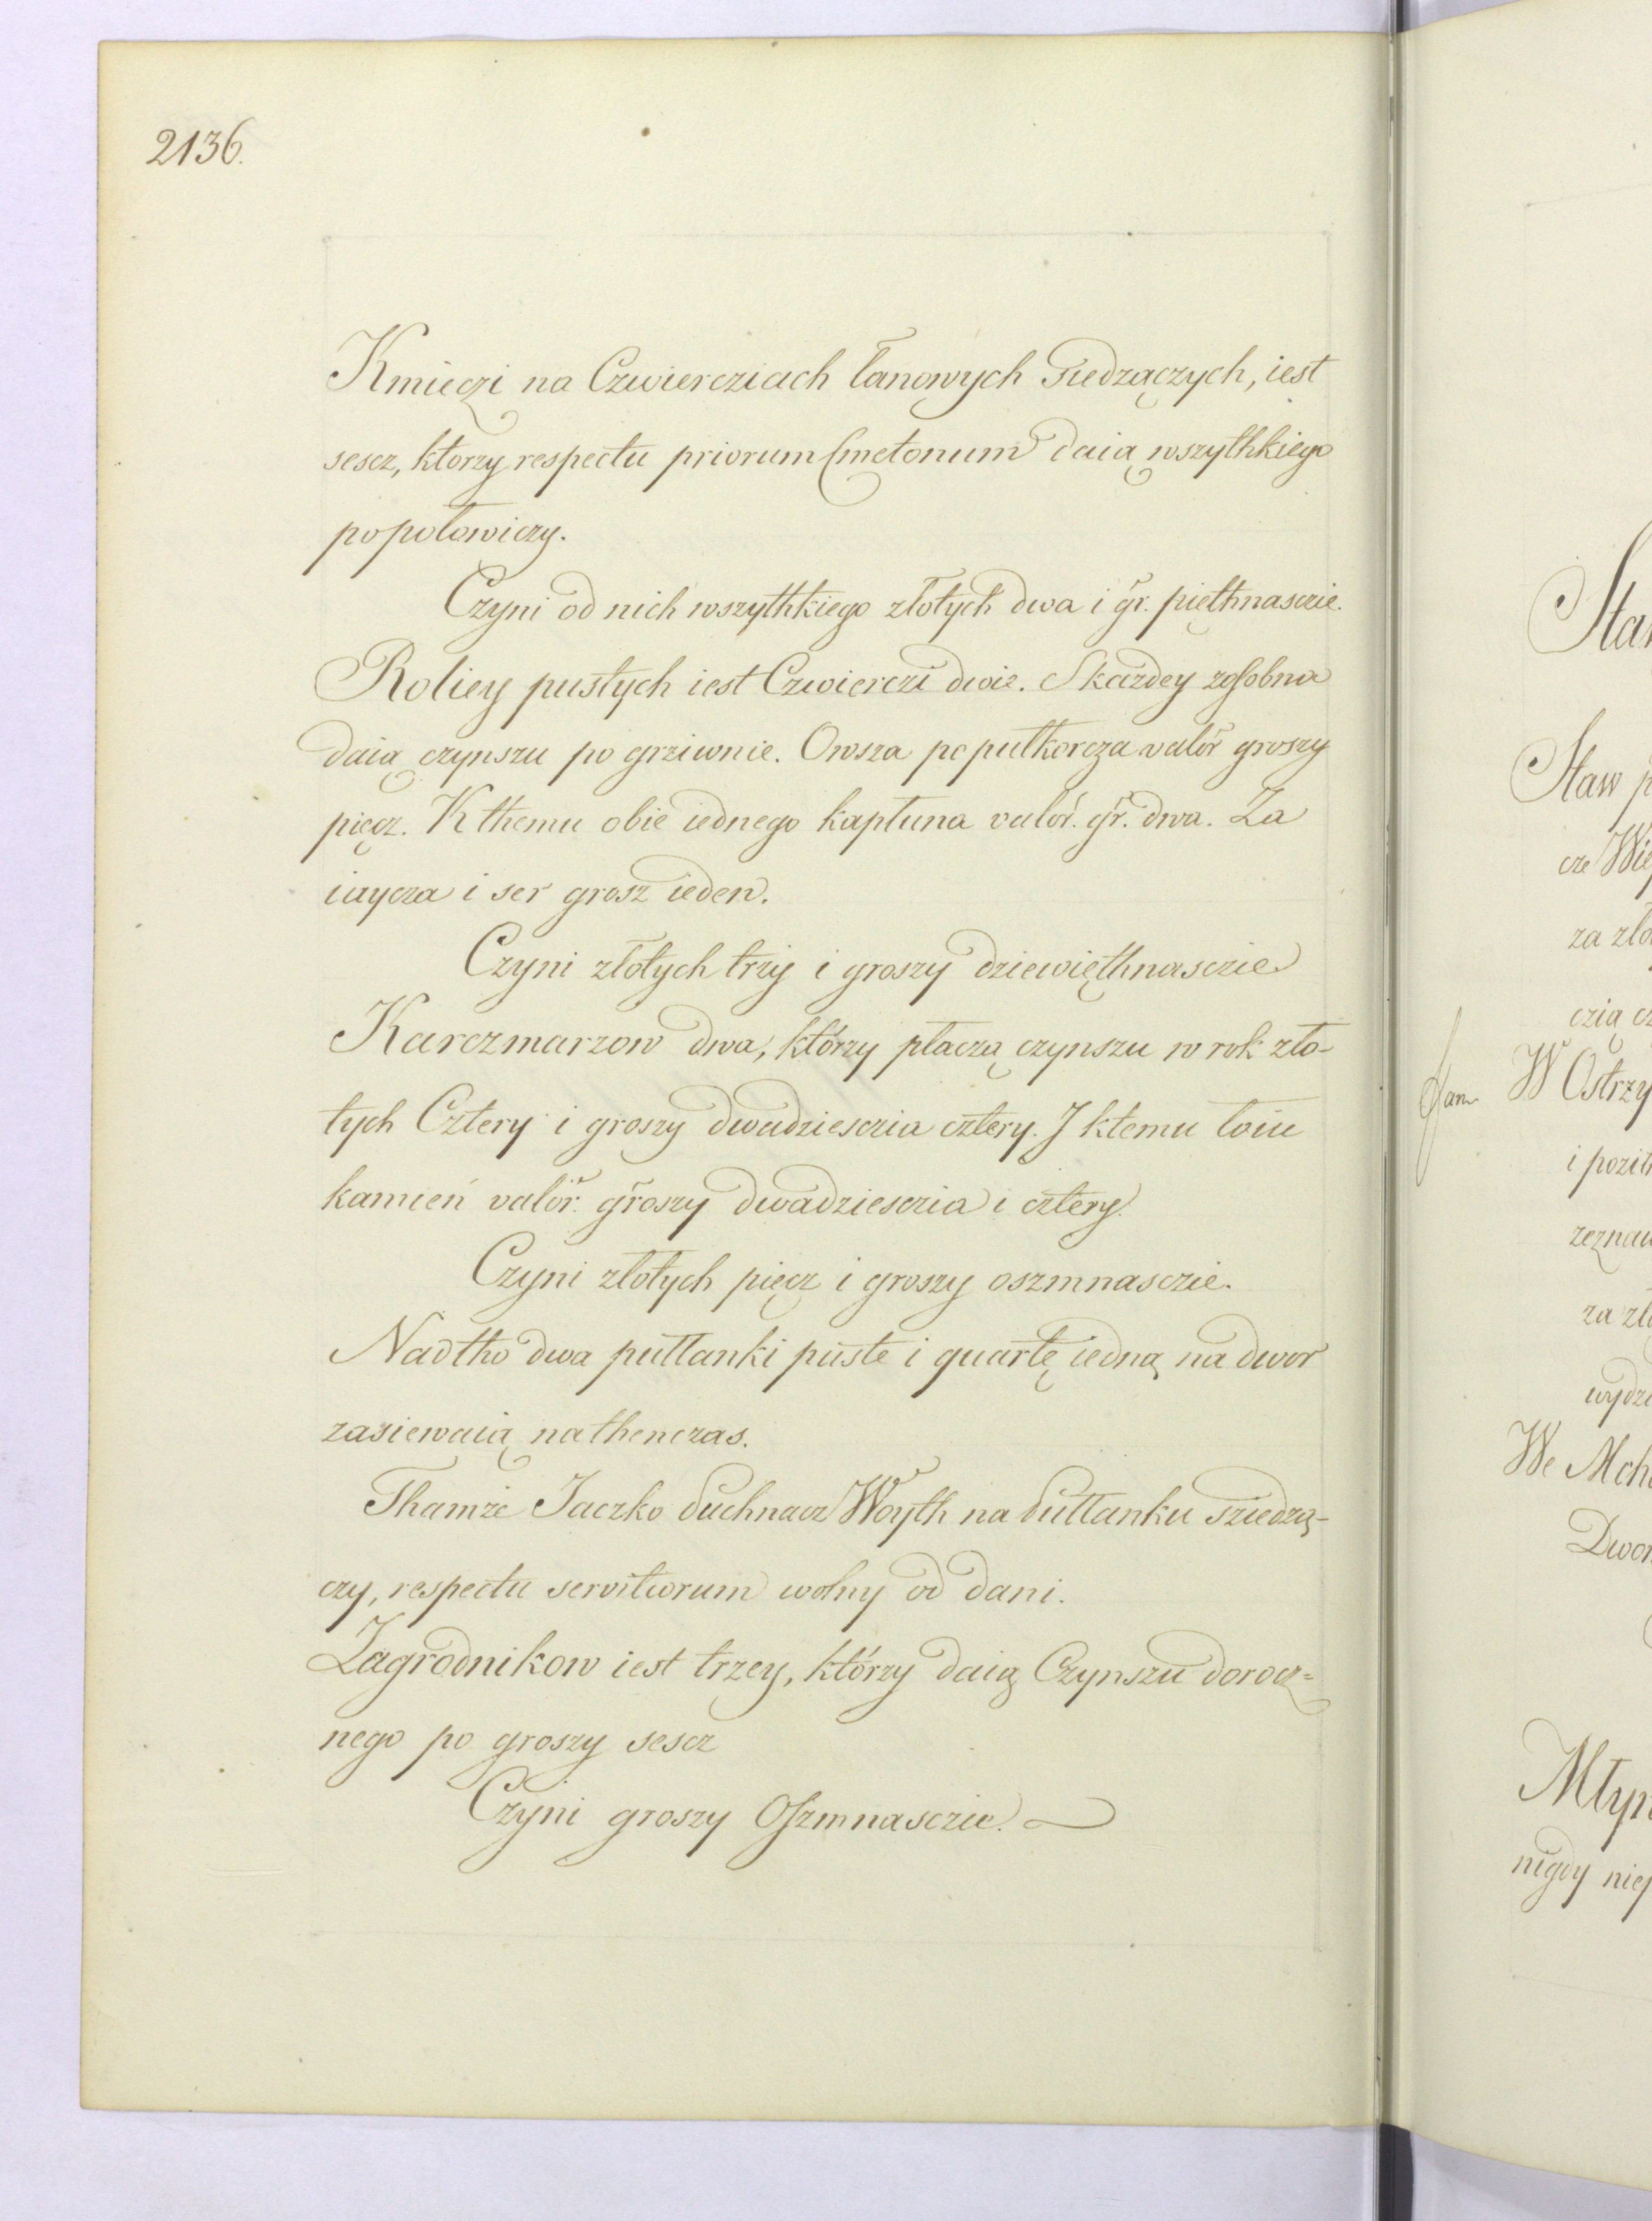 2136.
Kmieczi na Czwiercziach łanowych siedzączych, iest
sescz, ktorzy respectu priorum Cmetonum daią wszythkiego
popołowiczy.
Czyni od nich wszythkiego złotych dwa i gr. pięthnasczie.
Roliey pustych iest Czwierczi dwie. Skażdey zossobna
daią czynszu po grziwnie. Owsza po pułkorcza valor groszy
pięcz. K themu obie iednego kapłuna valor. gr. dwa. Za
iaycza i ser grosz ieden.
Czyni złotych trzy i groszy dziewięthnasczie
Karczmarzow dwa, którzy płaczą czynszu w rok zło-
tych Cztery i groszy dwadziesczia cztery. J ktemu łoiu
kamień valor. groszy dwadziesczia i cztery.
Czyni złotych pięcz i groszy oszmnasczie.
Nadtho dwa pułlanki puste i quartę iedną na dwor
zasiewaią nathenczas.
Thamże Jaczko Suchnacz Woyth na pułlanku sziedzą-
czy, respectu servitiorum wolny od dani.
Zagrodnikow iest trzey, którzy daią Czynszu dorocz=
nego po groszy sescz
Czyni groszy Oszmnasczie.
Staw
cze
za
czią
W Ostrzy
i
za
We
nigdy